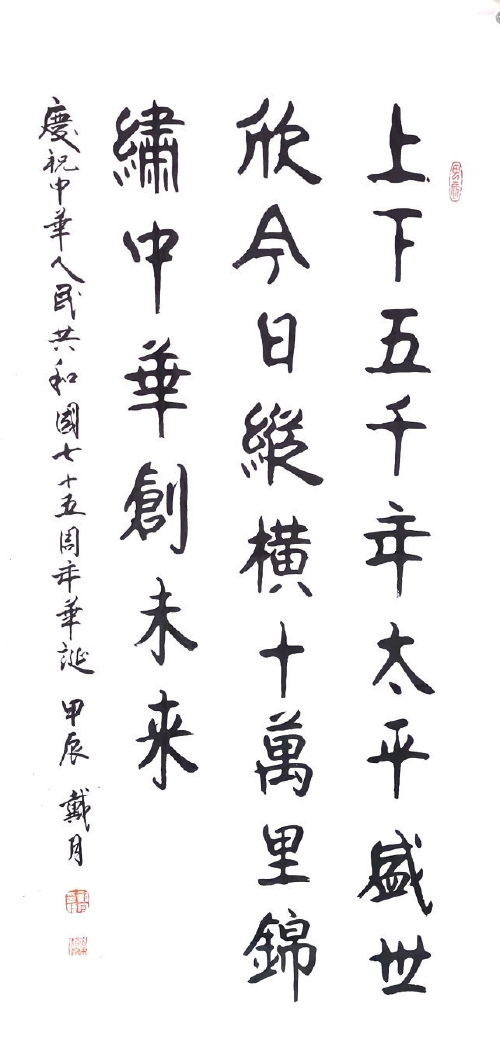 上下五千年太平盛世
欣今日縱橫十萬里錦
繡中華創未来
慶祝中華人民共和國七十五周年華誕 甲辰 戴月